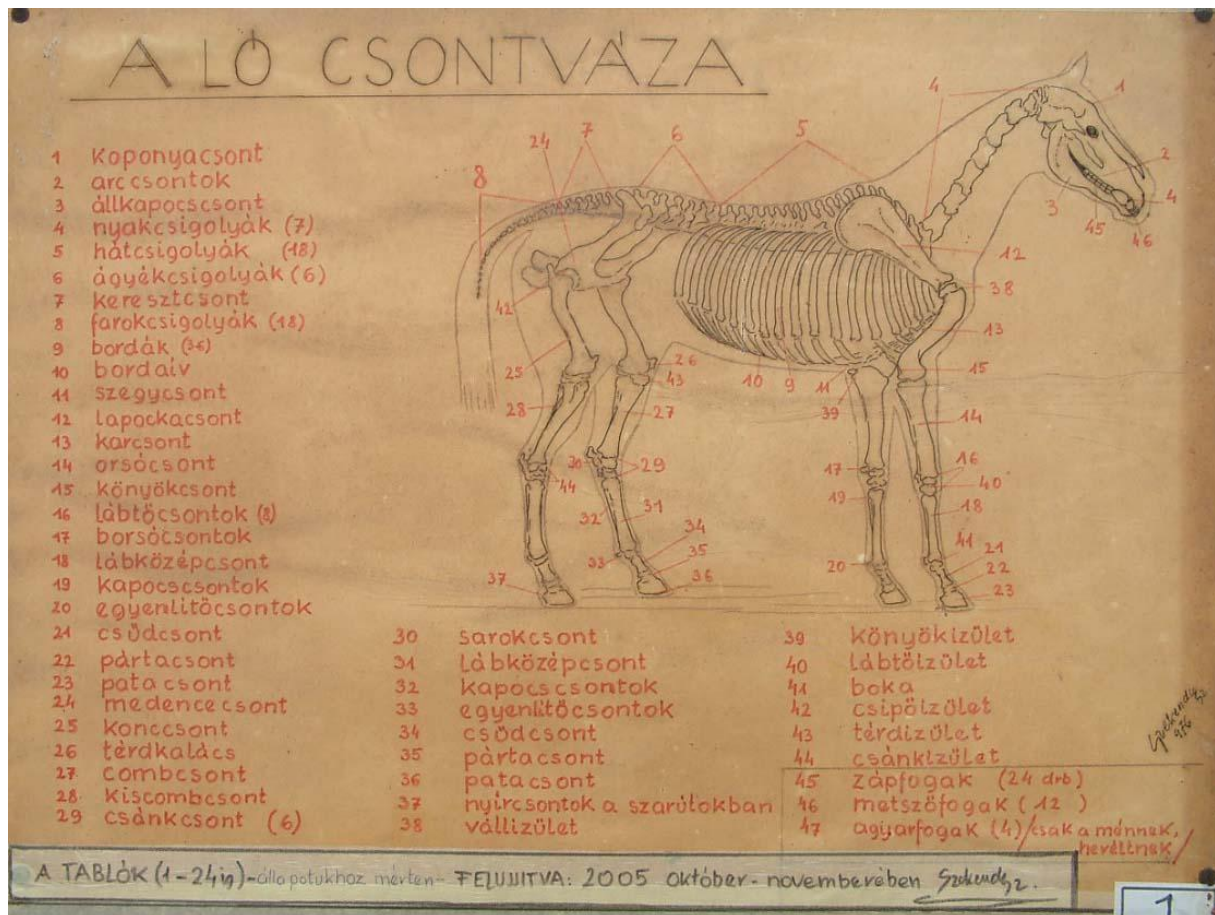 A LÓ CSONTVÁZA
1 koponyacsont
2 arccsontok
3 állkapocscsont
4 nyakcsigolyák (7)
5 hátcsigolyák (18)
6 ágyékcsigolyák (6)
7 keresztcsont
8 farokcsigolyák (18)
9 bordák (36)
10 bordaív
11 szegycsont
12 lapockacsont
13 karcsont
14 orsócsont
15 könyökcsont
16 lábtőcsontok (8)
17 borsócsontok
18 lábközépcsont
19 kapocscsontok
20 egyenlitőcsontok
21 csűdcsont
22 pártacsont
23 patacsont
24 medencecsont
25 konccsont
26 térdkalács
27 combcsont
28 kiscombcsont
29 csánkcsont (6)
30 sarokcsont
31 lábközépcsont
32 kapocscsontok
33 egyenlitőcsontok
34 csűdcsont
35 pártacsont
36 patacsont
37 nyírcsontok a szarútokban
38 vállizület
39 könyökizület
40 lábtőizület
41 boka
42 csipőizület
43 térdizület
44 csánkizület
45 zápfogak (24 drb)
46 metszőfogak (12)
47 agyarfogak (4)/csak a ménnek,
heréltnek/
24 7 6 5 4 1
8 2
3 4
45 46
12
42 38
13
25 26 15
43 10 9 11
28 27 39 14
30 29 17 16
44 40
32 31 19 18
34 41
33 35 20 21
22
37 36 23
A TABLÓK (1-24ig)-állapotukhoz mérten- FELUJITVA: 2005 október-novemberében
1